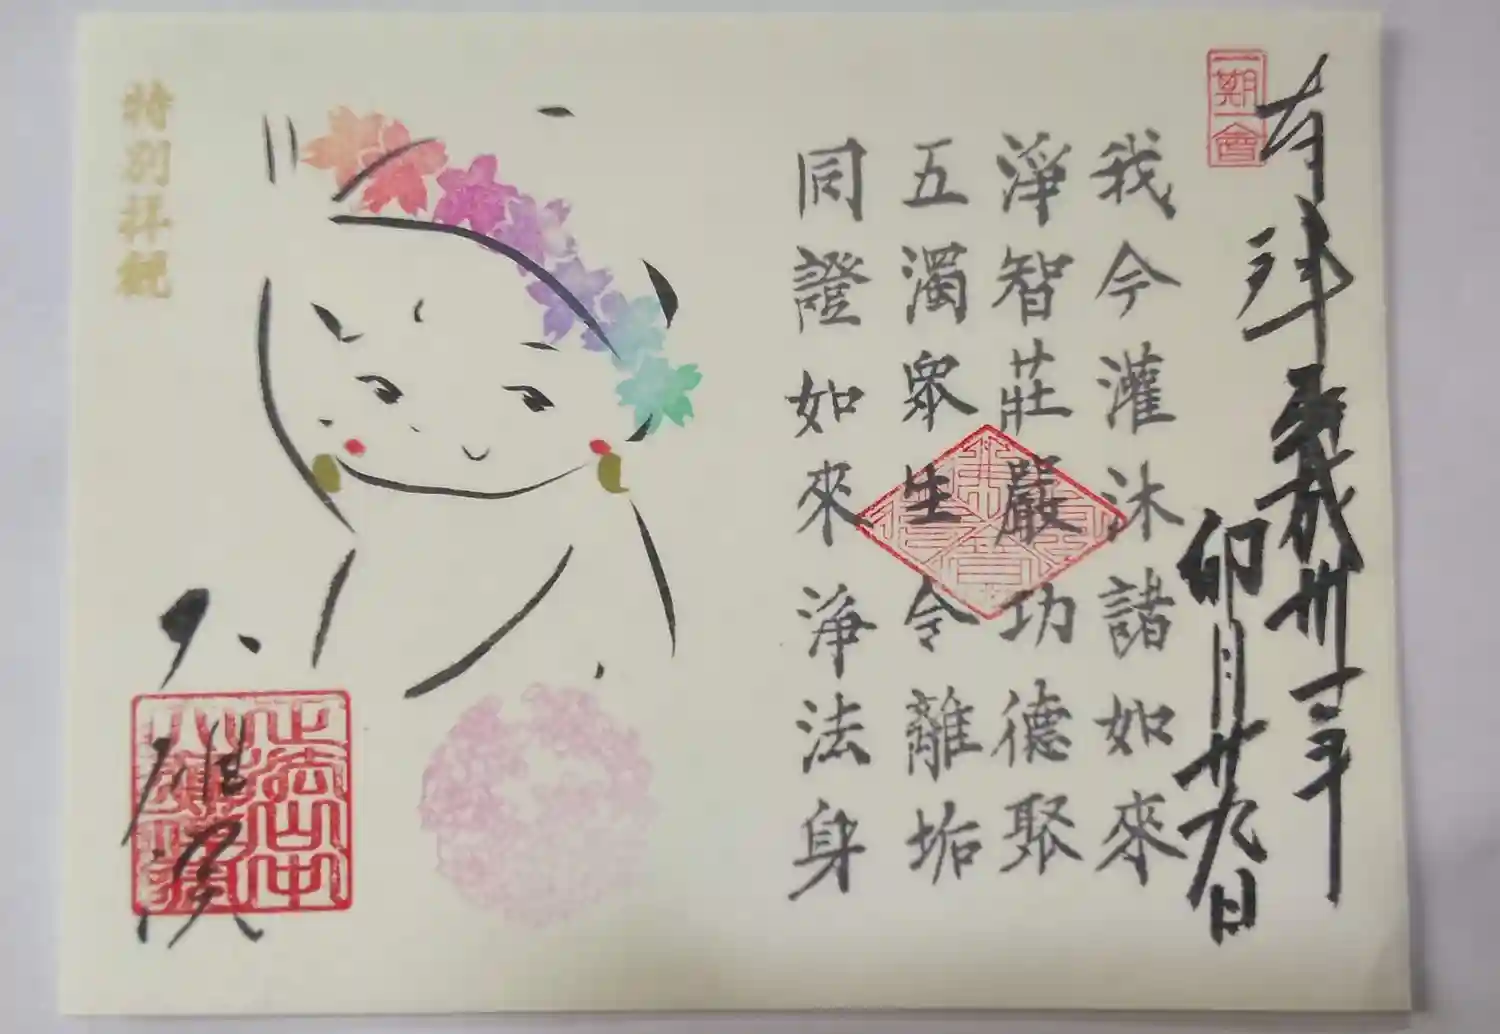 一期一會
奉拝 平成卅一年
卯月廿九日
我今灌沐諸如來
淨智莊嚴功德聚
五濁衆生令離垢
同證如來淨法身
特別拝観